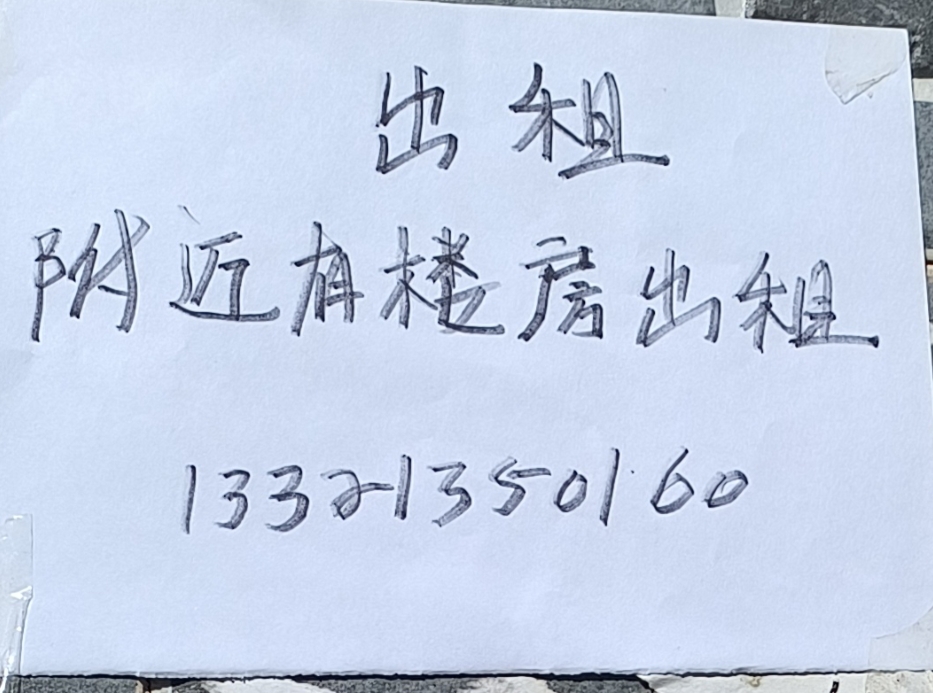 出租
附近有楼房出租
13321350160